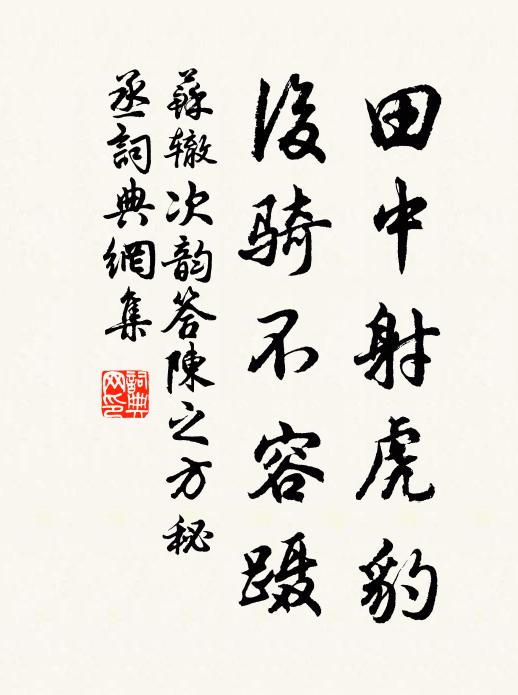 田中射虎豹
後骑不容蹑
蘇辙次韵答陳之方秘
丞詞典網集
詞典网印